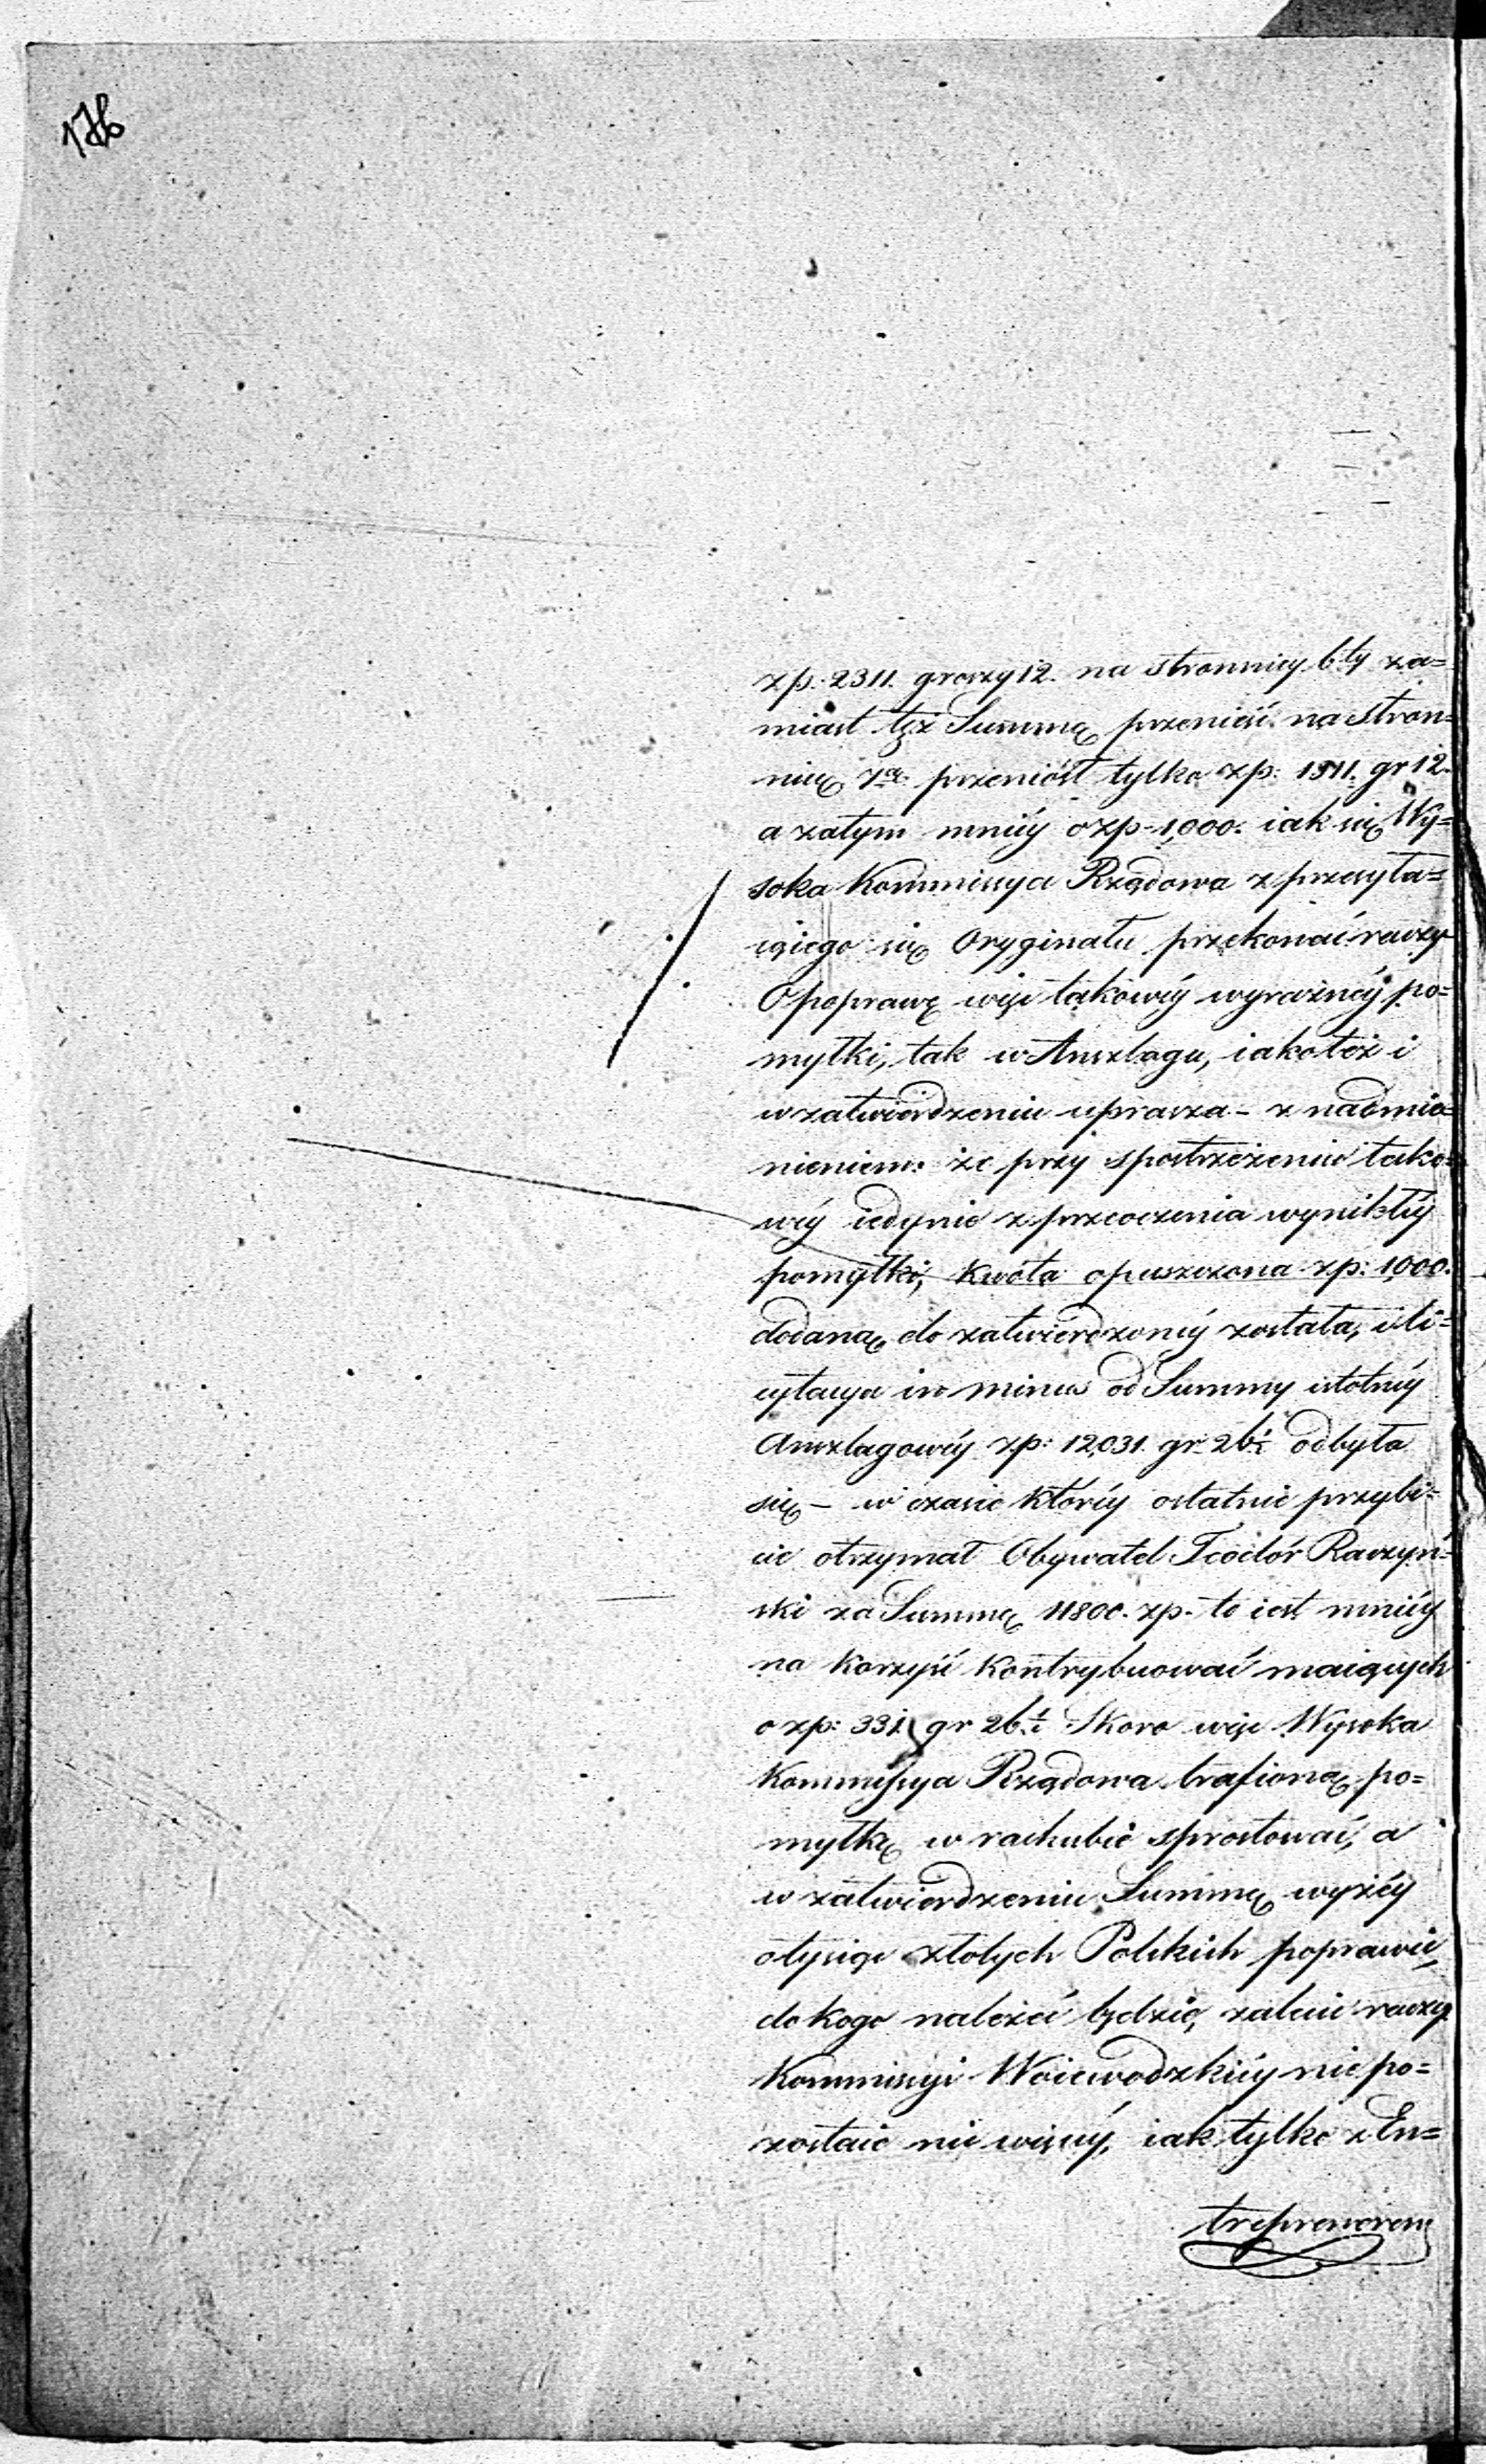 176
zp: 2311. groszy 12. na stronnicy 6tey za=
miast tęż Summę przenieść na stron=
nicę 7ą przeniósł tylko zp: 1311. gr 12.
a zatym mniéy o zp. 1,000. iak się Wy=
soka Kommissya Rządowa z przesyła=
iącego się Oryginału przekonać raczy
O poprawę więc takowéy wyraźnéy po=
myłki, tak w Anszlagu, iakoteż i
w zatwierdzeniu uprasza – z nadmie=
nieniem: że przy spostrzeżeniu tako=
wéy iedynie z przeoczenia wynikłéy
pomyłki, kwota opuszczona zp: 1,000.
dodaną do zatwierdzonéy została, i li=
cytacya in minus od Summy istotnéy
Anszlagowéy zp: 12,031. gr. 26½ odbyła
się – w czasie któréy ostatnie przybi=
cie otrzymał Obywatel Teodór Raczyń=
ski za Summę 11800. zp. to iest mniéy
na korzyść kontrybuować maiących
o zp: 331. gr 26.½ Skoro więc Wysoka
Kommissya Rządowa trafioną po=
myłkę w rachubie sprostować, a
w zatwierdzeniu Summę wyżéy
o tysiąc złotych Polskich poprawić,
do kogo należeć będzie, zalecić raczy
Kommissyi Woiewodzkiéy nie po=
zostaie nic więcéy, iak tylko z En=
treprenerem